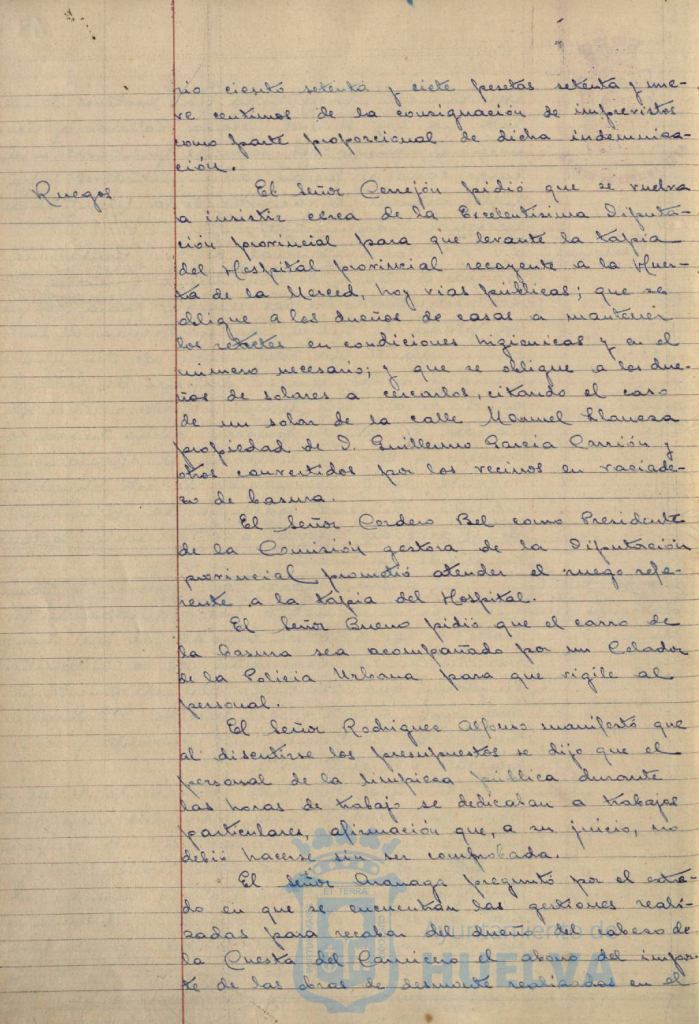 rio ciento setenta y siete pesetas setenta y nue-
ve centimos de la consignación de imprevistos
como parte proporcional de dicha indemniza-
ción.
Ruegos
El Señor Cerrejón pidió que se vuelva
a insistir cerca de la Excelentísima Diputa-
ción provincial para que levante la tapia
del Hospital provincial recayente a la Huer-
ta de la Merced, hoy vias públicas; que se
obligue a los dueños de casas a mantener
los retretes en condiciones higienicas y en el
número necesario; y que se obligue a los due-
ños de solares a cercarlos, citando el caso
de un solar de la calle Manuel Llaneza
propiedad de D. Guillermo García Carrión y
otros convertidos por los vecinos en vaciade-
ro de basura.
El Señor Cordero Bel como Presidente
de la Comisión gestora de la Diputación
provincial prometió atender el ruego refe-
rente a la tapia del Hospital.
El Señor Bueno pidió que el carro de
la basura sea acompañado por un Celador
de la Policia Urbana para que vigile al
personal.
El Señor Rodriguez Alfonso manifestó que
al discutirse los presupuestos se dijo que el
personal de la limpieza pública durante
las horas de trabajo se dedicaban a trabajos
particulares, afirmación que, a su juicio, no
debió hacerse sin ser comprobada.
El Señor Aranaga preguntó por el esta-
do en que se encuentran las gestiones reali-
zadas para recabar del dueño del cabezo de
la Cuesta del Carnicero el abono del impor-
te de las obras de desmonte realizadas en el
HUELVA